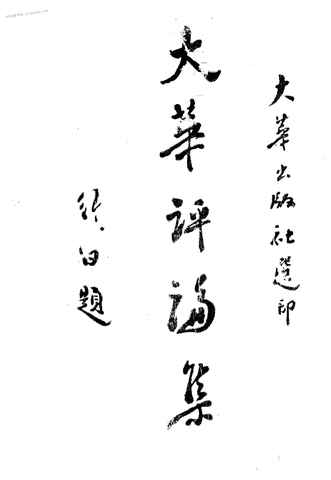 大華出版社選印
大華評論集
題